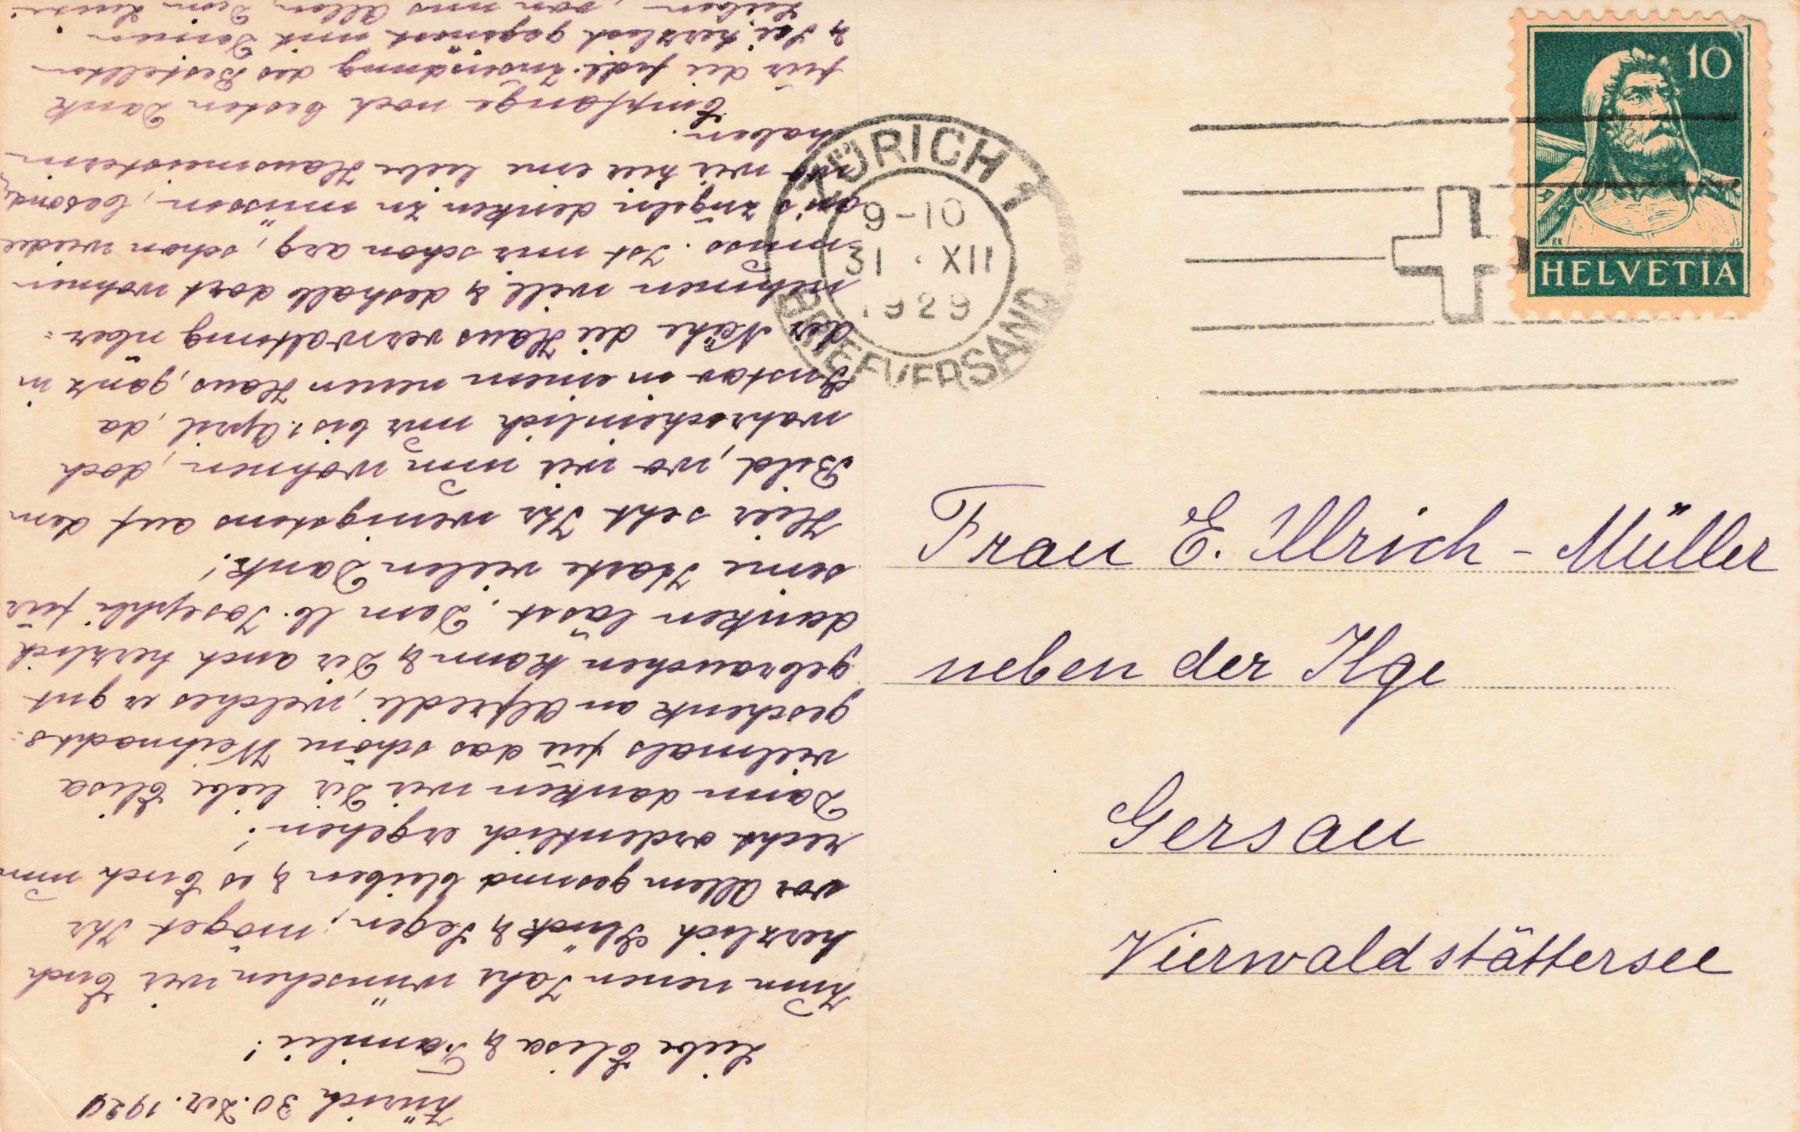 Zürich 30. Dez. 1929
Liebe Elisa & Familie!
Zum neuen Jahr wünschen wir Euch
herzlich Glück & Segen, möget Ihr
vor Allem gesund bleiben & es Euch nun
recht ordentlich ergehen!
Dann danken wir Dir liebe Elisa
vielmals für das schöne Weihnachts-
geschenk an Alfredli, welches er gut
gebrauchen kann & Dir auch herzlich
danken lässt. Dem lb. Josephli für
seine Karte vielen Dank!
Hier seht Ihr wenigstens auf dem
Bild, wo wir nun wohnen, doch
wahrscheinlich nur bis 1. April, da
Gustav in einem neuen Haus, ganz in
der Nähe die Hausverwaltung über-
nehmen will & deshalb dort wohnen
muss. Ist mir schon arg, schon wieder
an's zügeln denken zu müssen, besonders
wo wir hier eine liebe Hausmeisterin
haben.
Empfange noch besten Dank
für die fdl. Zusendung des Bestellten
& sei herzlich gegrüsst mit Deinen
Lieben, von uns Allen, Deine Luise
ZÜRICH 1
9-10
31 · XII
1929
BRIEFVERSAND
10
HELVETIA
Frau E. Ulrich-Müller
neben der Ilge
Gersau
Vierwaldstättersee